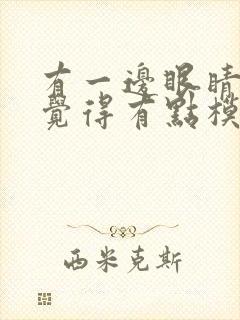 有一邊眼睛
覺得有點模
西米克斯